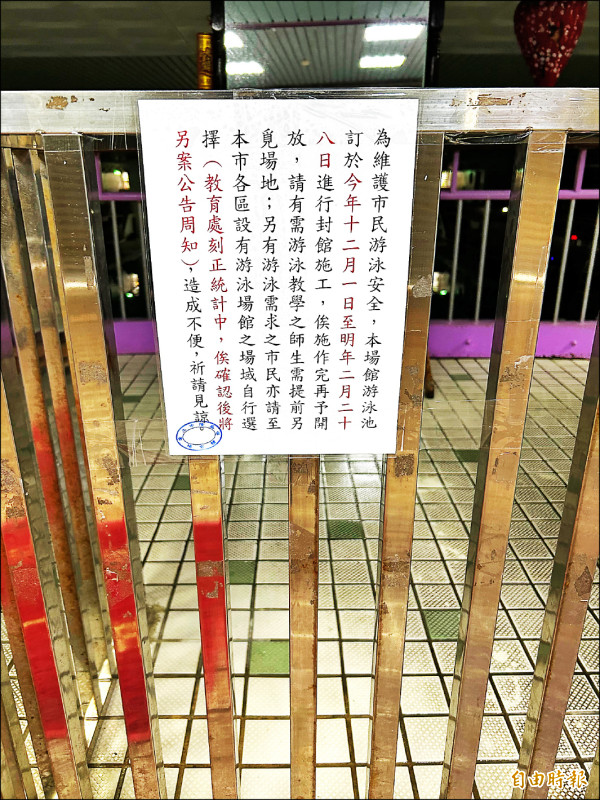 為維護市民游泳安全，本場館游泳池
訂於今年十二月一日至明年二月二十
八日進行封館施工，俟施作完再予開
放，請有需游泳教學之師生需提前另
覓場地；另有游泳需求之市民亦請至
本市各區設有游泳場館之場域自行選
擇（教育處刻正統計中，俟確認後將
另案公告周知），造成不便，祈請見諒
自由時報